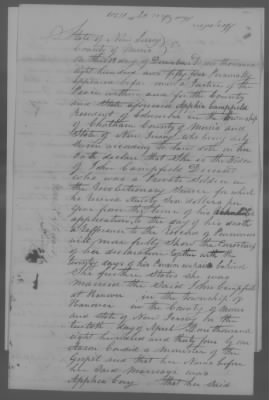 State of New Jersey
County of Morris
On this day of December One thousand
eight hundred and fifty four Personally
appeared before me a Justice of the
Peace within and for the County
and State aforesaid Apphia Campfield
Resident of Columbia in the Township
of Chatham County of Morris and
State of New Jersey who being duly
Sworn according to law doth on her
oath declare that She is the Widow
of John Campfield Deceased
who was a Private Soldier in
the Revolutionary Service for which
he received ninety six dollars per
year from the time of his
application to the time of his death
a Refference to the Records of Pensions
will more fully show the Correctness
of her declaration together with the
She further States she was
married the said John Campfield
at Hanover in the Township of
Hanover in the County of Morris
and State of New Jersey on the
twentieth day of April One thousand
eight hundred and thirty four by one
Aaron Condit a Minister of the
Gospel and that her Name before
her Said Marriage was
Apphia Cory that her said